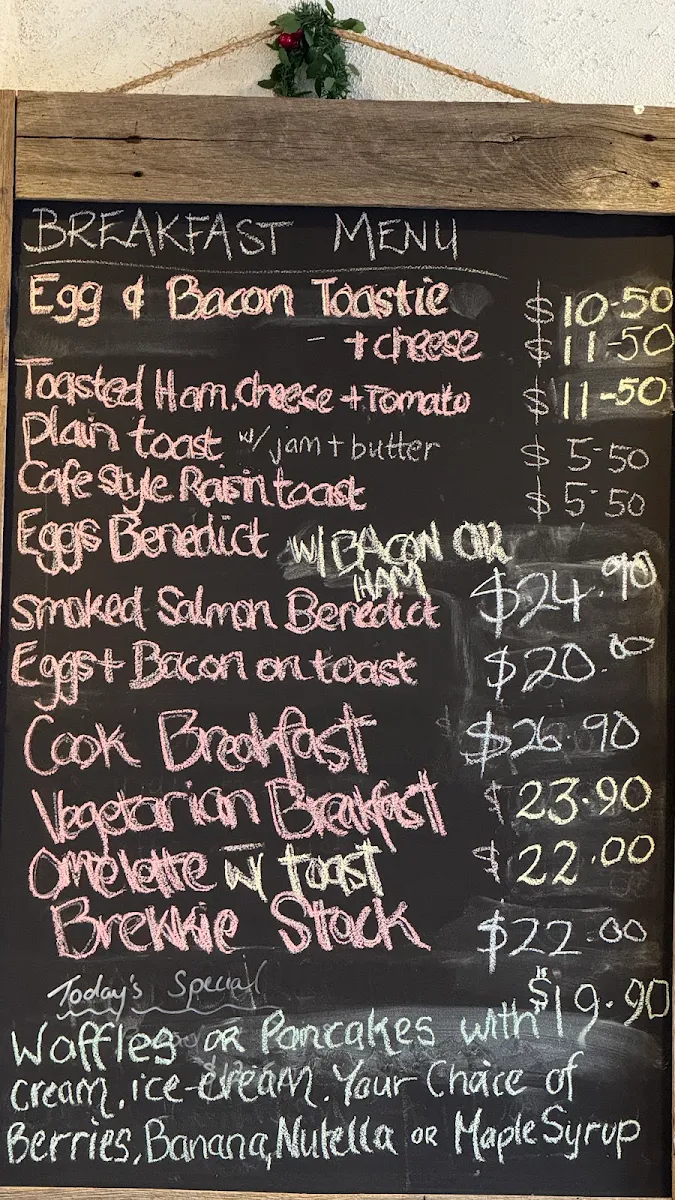 BREAKFAST MENU
Egg & Bacon Toastie $10-50
- + cheese $11-50
Toasted Ham, cheese + Tomato $11-50
Plain toast w/ jam + butter $5-50
Cafe Style Raisin toast $5-50
Eggs Benedict w/ BACON OR
HAM $24.90
Smoked Salmon Benedict
Eggs + Bacon on toast $20.00
Cook Breakfast $26.90
Vegetarian Breakfast $23.90
Omelette w/ toast $22.00
Brekkie Stack $22.00
Today's Special
Waffles OR Pancakes with $19.90
cream, ice-cream. Your Choice of
Berries, Banana, Nutella OR Maple Syrup